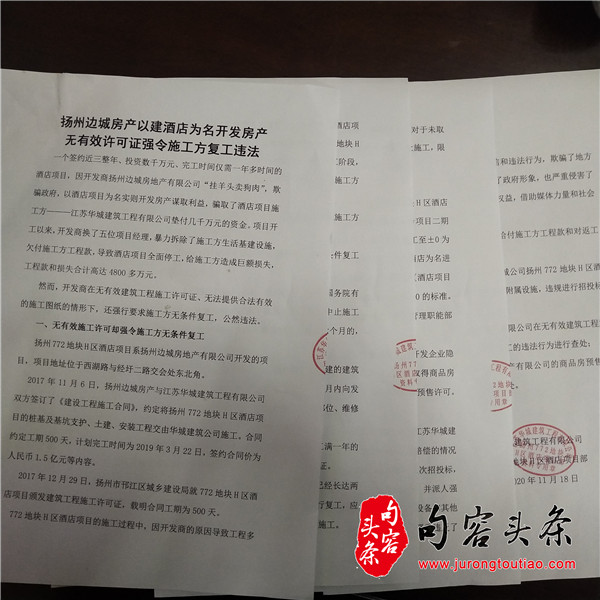 扬州边城房产以建酒店为名开发房产
无有效许可证强令施工方复工违法
一个签约近三整年、投资数千万元、完工时间仅需一年多时间的
酒店项目，因开发商扬州边城房地产有限公司“挂羊头卖狗肉”，欺
骗政府，以酒店项目为名实则开发房产谋取利益，骗取了酒店项目施
工方——江苏华城建筑工程有限公司垫付几千万元的资金。项目开
工以来，开发商换了五位项目经理，暴力拆除了施工方生活基建设施，
欠付施工方工程款，导致酒店项目全面停工，给施工方造成巨额损失，
工程款和损失合计高达 4800 多万元。
然而，开发商在无有效建筑工程施工许可证、无法提供合法有效
的施工图纸的情形下，还强行要求施工方无条件复工，公然违法。
一、无有效施工许可却强令施工方无条件复工
扬州 772 地块H区酒店项目系扬州边城房地产有限公司开发的项
目，项目地址位于西湖路与经圩二路交会处东北角。
2017 年 11 月 6 日，扬州边城房产与江苏华城建筑工程有限公司
双方签订了《建设工程施工合同》，约定将扬州 772 地块H区酒店项
目的桩基及基坑支护、土建、安装工程交由华城建筑公司施工，合同
约定工期 500 天，计划完工时间为 2019 年 3 月 22 日，签约合同价为
人民币 1.5 亿元等内容。
2017 年 12 月 29 日，扬州市邗江区城乡建设局就 772 地块H区酒
店项目颁发建筑工程施工许可证。载明合同工期为 500 天。
772 地块H区酒店项目的施工过程中，因开发商的原因导致工程多
酒店项
地块H
阶段，
施工方
施工方
条件复工
服务院有
中止施工
个月的，
建的建筑
月内向发
部位、维修
工满一年的
已经长达两
行复工，应
对于未取
施工，限
H区酒店
项目二期
工至±0 为
酒店为名进
区酒店项目
0 的标准。
管理职能部
开发企业隐
取得商品房
预售许可。
江苏华城建
赔偿的情况
次招投标，
并派人强
设备、其他
和违法行为，欺骗了地方
了政府形象，也严重侵害了
权益，借助媒体力量和社会
给付施工方工程款和对返工
城公司扬州 772 地块H区
附属设施，违规进行招投标
在无有效建筑工程
工的违法行为进行查处；
有限公司的商品房预售许
建筑工程有限公司
地块H区酒店项目部
2020 年 11 月 18 日
句容头条
句容头条
www.jurongtoutiao.com